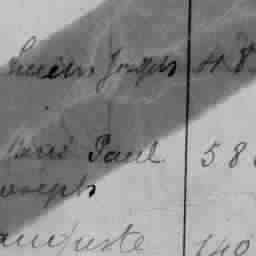 Lucien Joseph 48
Paul 58
oseph
auguste 140